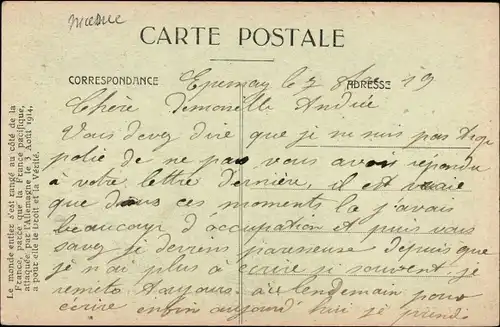 CARTE POSTALE
CORRESPONDANCE
ADRESSE
Le monde entier s'est rangé au côté de la
France, parce que la France pacifique,
attaquée par l'Allemagne le 3 Août 1914,
a pour elle le Droit et la Vérité.
Epernay le 7 19
Chère Demoiselle Andrée
Vous devez dire que je ne suis pas trop
polie de ne pas vous avoir répondu
à votre lettre dernière, il est vraie
que dans ces moments la j'avais
beaucoup d'occupation et puis vous
savez je deviens paresseuse depuis que
je n'ai plus à écrire si souvent, je
remets toujours au lendemain pour
écrire enfin aujourd'hui je prends